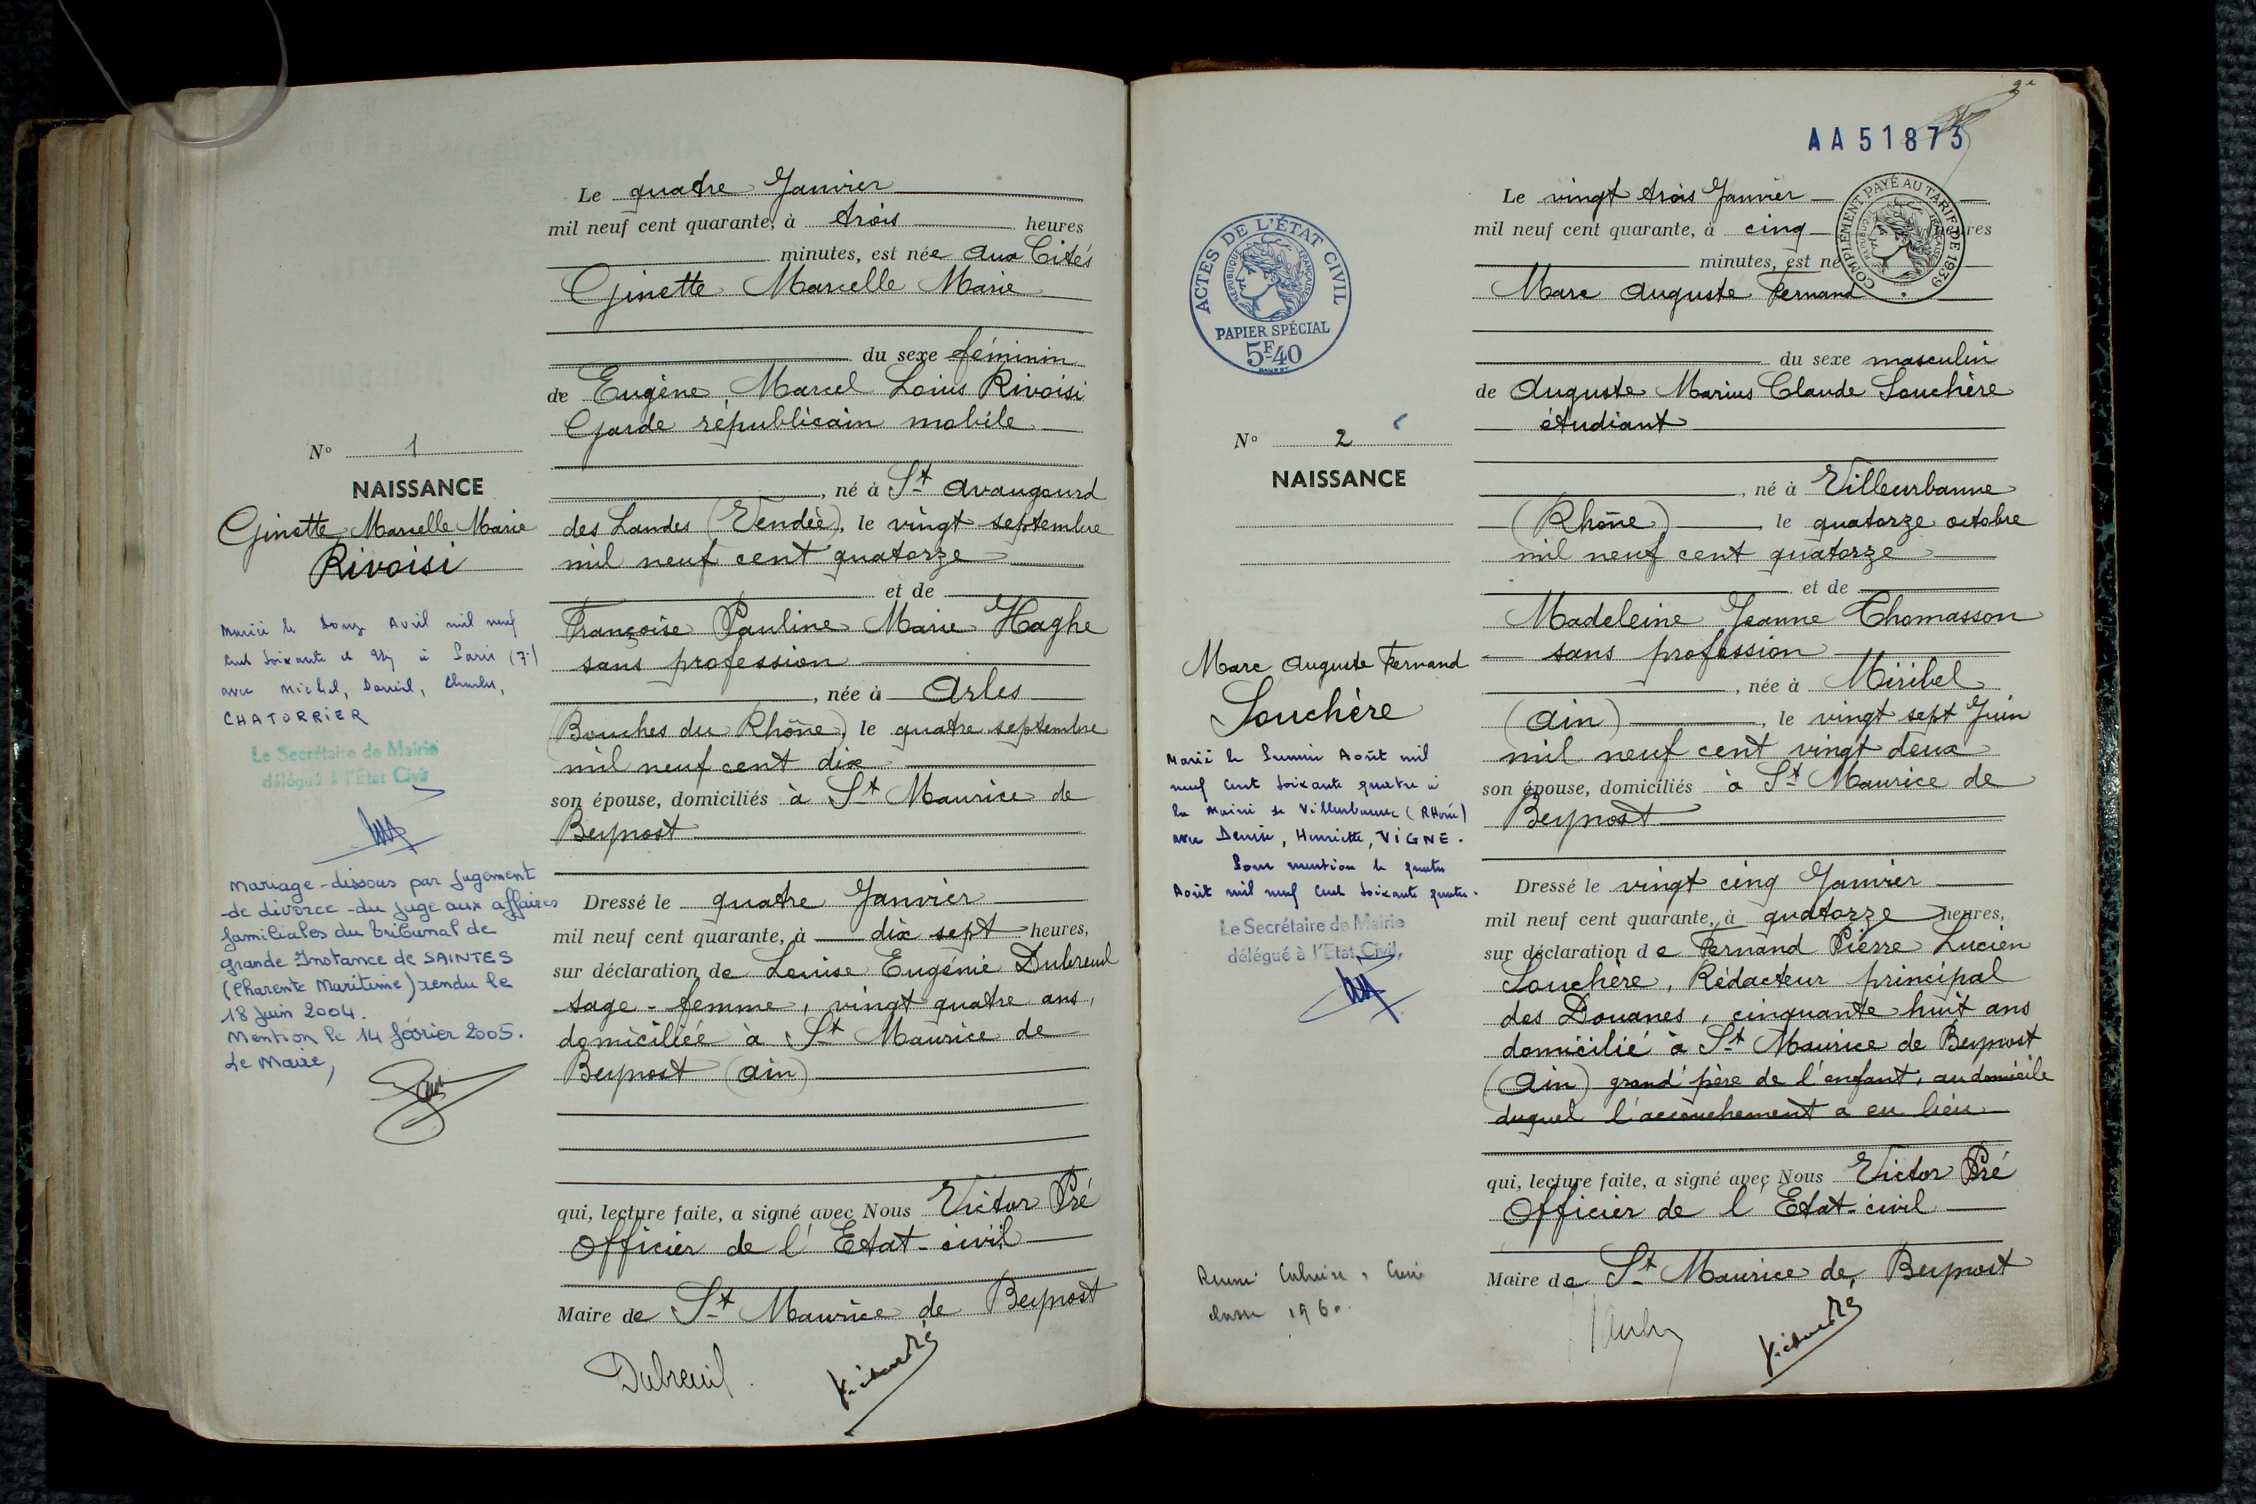 Le quatre Janvier
mil neuf cent quarante, à trois heures
minutes, est née aux Cités
Ginette Marcelle Marie
du sexe féminin
de Eugène, Marcel Loius Rivoisi
Garde républicain mobile
, né à St Avaugourd
des Landes (Vendée), le vingt septembre
mil neuf cent quatorze
et de
Françoise Pauline Marie Haghe
sans profession
, née à Arles
(Bouches du Rhône), le quatre septembre
mil neuf cent dix
son épouse, domiciliés à St Maurice de
Beynost
Dressé le quatre Janvier
mil neuf cent quarante, à dix sept heures,
sur déclaration de Louise Eugénie Dubreuil
sage-femme, vingt quatre ans,
domiciliée à St Maurice de
Beynost (Ain)
qui, lecture faite, a signé avec Nous Victor Pré
Officier de l'Etat-civil
Maire de St Maurice de Beynost
Dubreuil.
Victor Pré
No 1
NAISSANCE
Ginette Marcelle Marie
Rivoisi
Marié le douze Avril mil neuf
cent soixante et un à Paris (7e)
avec Michel, Daniel, Charles,
CHATORRIER
Le Secrétaire de Mairie
délégué à l'Etat Civil
Mariage dissous par jugement
de divorce du juge aux affaires
familiales du Tribunal de
grande Instance de SAINTES
(Charente Maritime) rendu le
18 juin 2004.
Mention le 14 février 2005.
Le Maire,
AA51873
ACTES DE L'ÉTAT CIVIL
RÉPUBLIQUE FRANÇAISE
PAPIER SPÉCIAL
5F40
COMPLÉMENT PAYÉ AU TARIF DE 1939
RÉPUBLIQUE FRANÇAISE
Le vingt trois Janvier
mil neuf cent quarante, à cinq heures
minutes, est né
Marc Auguste Fernand
du sexe masculin
de Auguste Marius Claude Souchère
étudiant
, né à Villeurbanne
(Rhône) le quatorze octobre
mil neuf cent quatorze
et de
Madeleine Jeanne Thomasson
sans profession
, née à Miribel
(Ain), le vingt sept Juin
mil neuf cent vingt deux
son épouse, domiciliés à St Maurice de
Beynost
Dressé le vingt cinq Janvier
mil neuf cent quarante, à quatorze heures,
sur déclaration de Fernand Pierre Lucien
Souchère, Rédacteur principal
des Douanes, cinquante huit ans
domicilié à St Maurice de Beynost
(Ain) grand'père de l'enfant, au domicile
duquel l'accouchement a eu lieu
qui, lecture faite, a signé avec Nous Victor Pré
Officier de l'Etat-civil
Maire de St Maurice de Beynost
Victor Pré
No 2
NAISSANCE
Marc Auguste Fernand
Souchère
Marié le Premier Août mil
neuf cent soixante quatre à
la Mairie de Villeurbanne (Rhône)
avec Denise, Henriette, VIGNE.
Pour mention le quatre
Août mil neuf cent soixante quatre.
Le Secrétaire de Mairie
délégué à l'Etat Civil,
classe 1960.